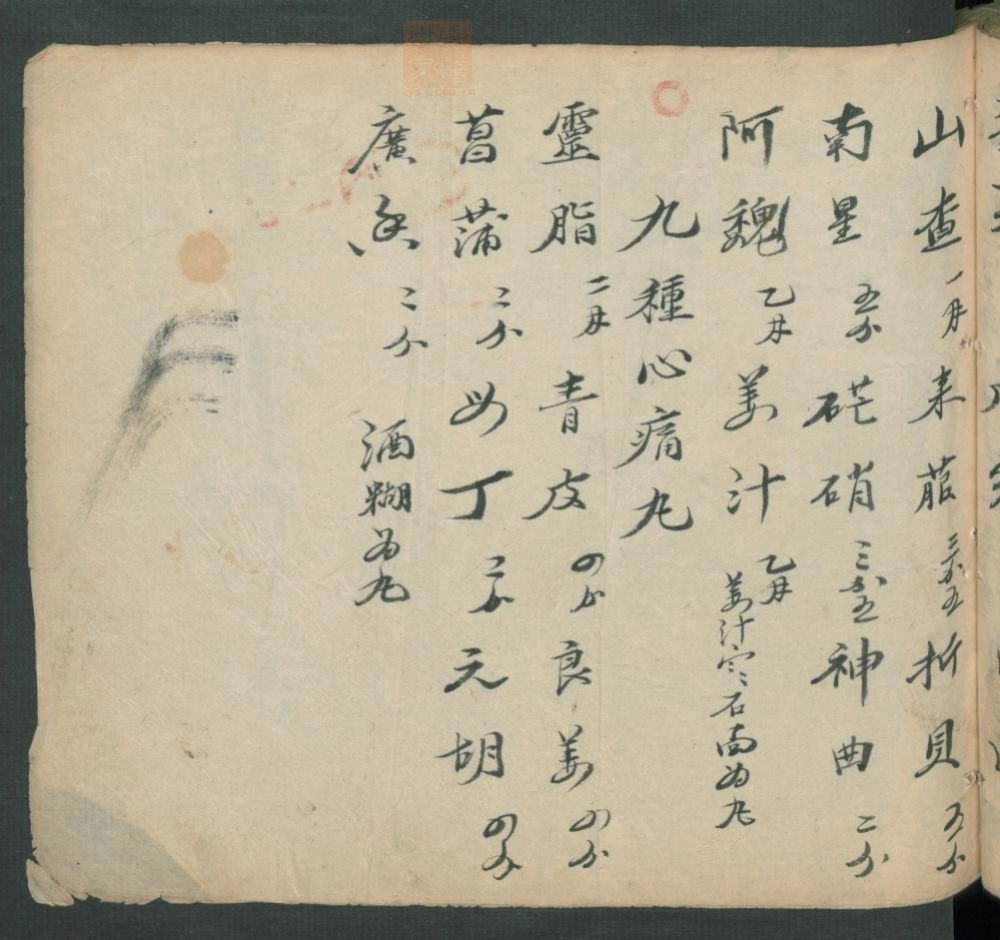 山查一月来菔三分五折貝五分
南星五分硭硝三分五神曲二分
阿魏乙月姜汁乙月姜汁石南為丸
九種心痛丸
靈脂二月青皮四分良姜四分
菖蒲二分丁二分元胡四分
廣香二分酒糊為丸